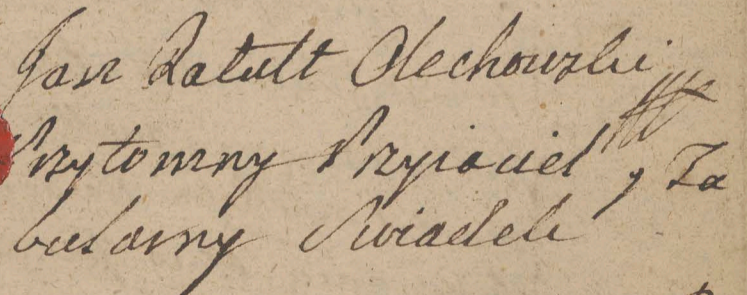 Jan Ratult Olechowski
Przytomny Przyiaciel y Za
busarny Swiadek